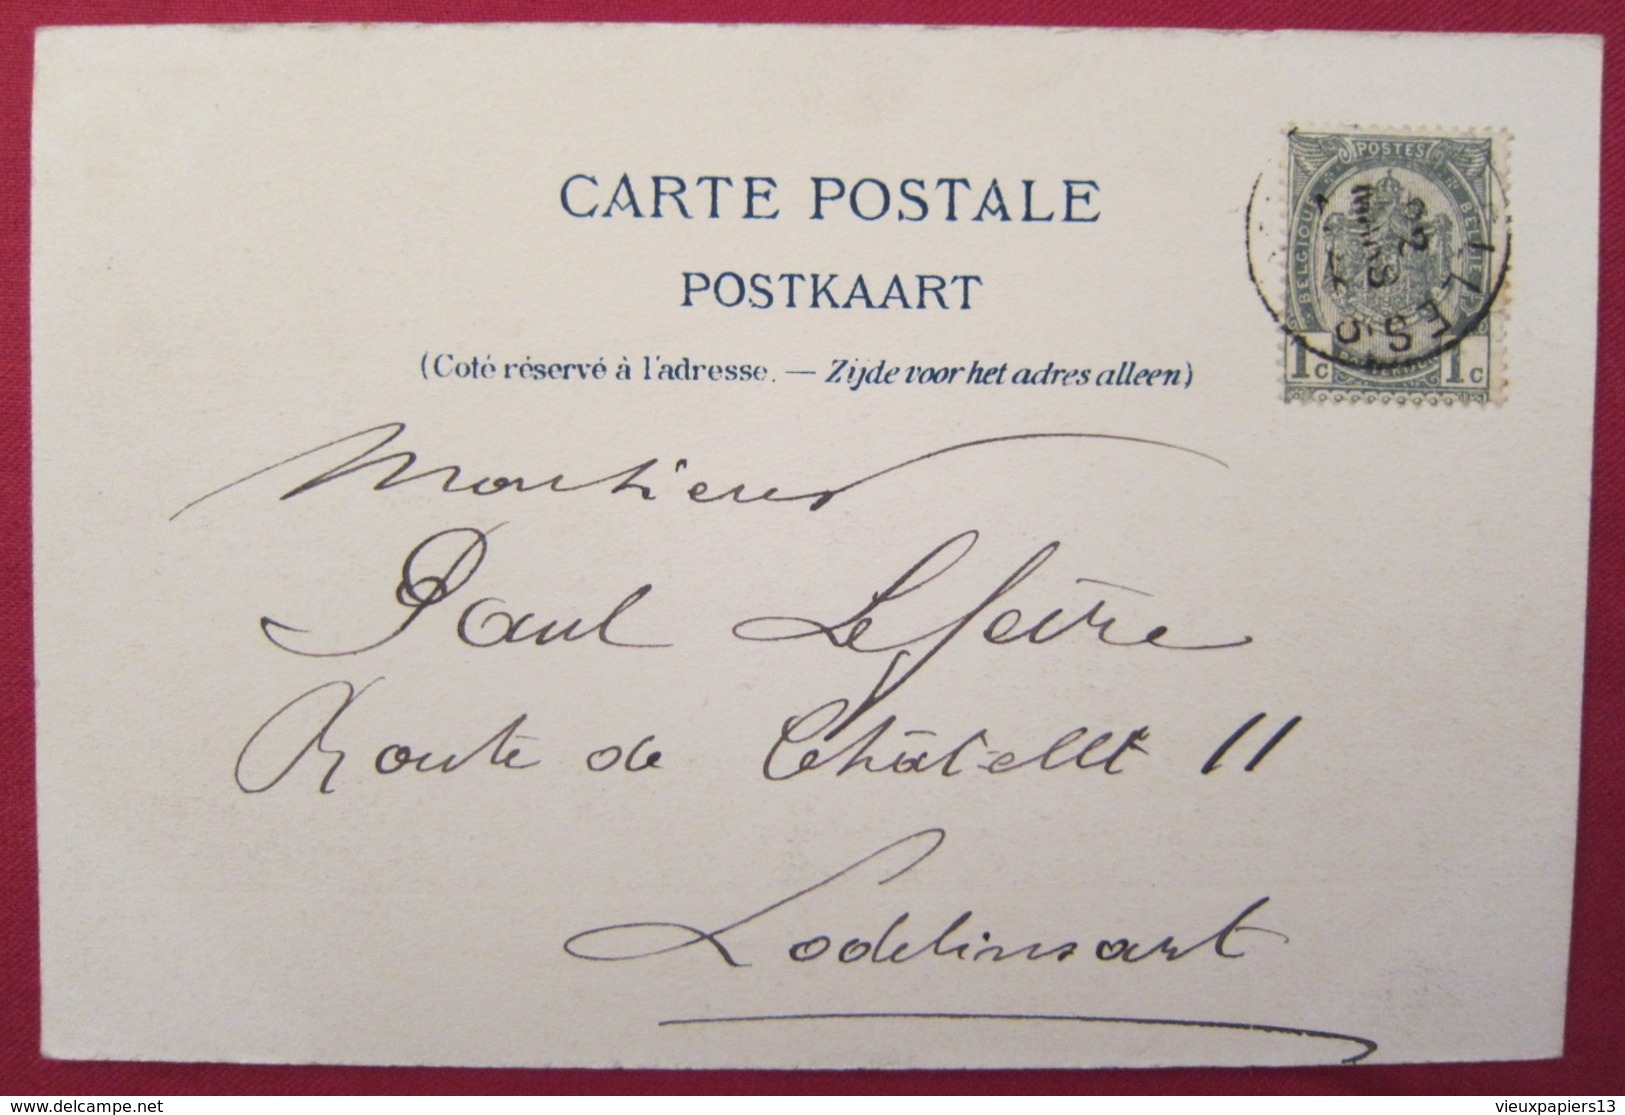 CARTE POSTALE
POSTKAART
(Coté réservé à l'adresse. — Zijde voor het adres alleen)
POSTES
BELGIQUE
BELGIË
1c 1c
02
Monsieur
Paul Lefèvre
Route de Châtelet 11
Lodelinsart
delcampe.net
vieuxpapiers13